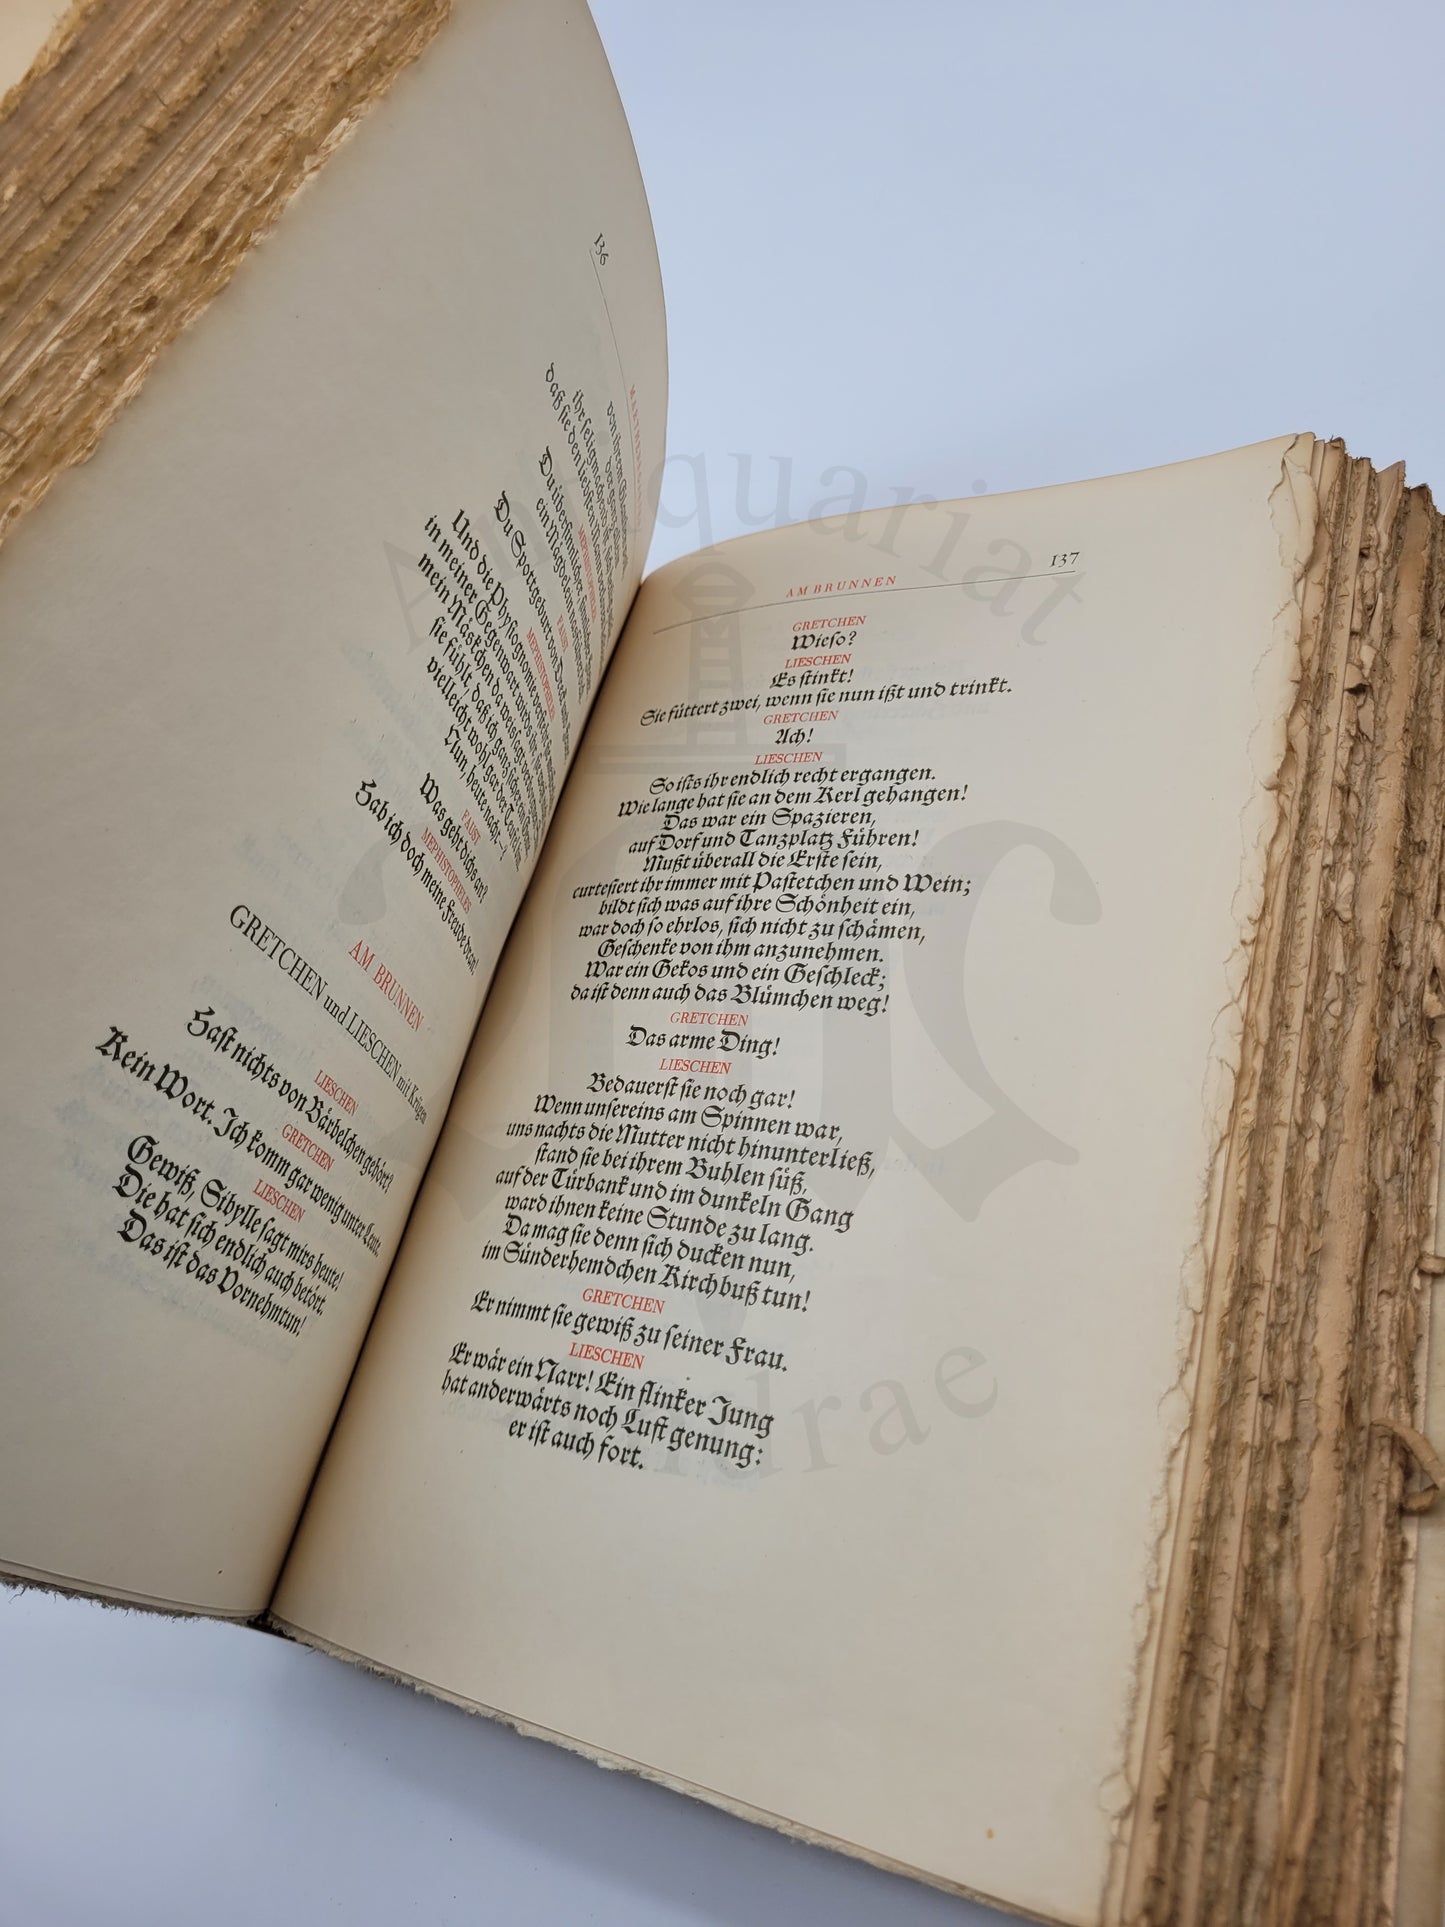 136
von ihrem
der ganz allein
ihr seligmachend ist, sich
daß sie den liebsten Mann
MEPHISTOPHELES
Du übersinnlicher, sinnlicher
ein Mägdelein nasführet dich.
FAUST
Du Spottgeburt von Dreck und
MEPHISTOPHELES
Und die Physiognomie versteht sie
in meiner Gegenwart wirds ihr, sie weiß nicht wie,
mein Mäskchen da weissagt verborgnen Sinn;
sie fühlt, daß ich ganz sicher ein Genie,
vielleicht wohl gar der Teufel bin.
Nun, heute nacht –?
FAUST
Was geht dichs an?
MEPHISTOPHELES
Hab ich doch meine Freude dran!
AM BRUNNEN
GRETCHEN und LIESCHEN mit Krügen
LIESCHEN
Hast nichts von Bärbelchen gehört?
GRETCHEN
Kein Wort. Ich komm gar wenig unter Leute.
LIESCHEN
Gewiß, Sibylle sagt mirs heute!
Die hat sich endlich auch betört.
Das ist das Vornehmtun!
AM BRUNNEN 137
GRETCHEN
Wieso?
LIESCHEN
Es stinkt!
Sie füttert zwei, wenn sie nun ißt und trinkt.
GRETCHEN
Ach!
LIESCHEN
So ists ihr endlich recht ergangen.
Wie lange hat sie an dem Kerl gehangen!
Das war ein Spazieren,
auf Dorf und Tanzplatz Führen!
Mußt überall die Erste sein,
curtesiert ihr immer mit Pastetchen und Wein;
bildt sich was auf ihre Schönheit ein,
war doch so ehrlos, sich nicht zu schämen,
Geschenke von ihm anzunehmen.
War ein Gekos und ein Geschleck;
da ist denn auch das Blümchen weg!
GRETCHEN
Das arme Ding!
LIESCHEN
Bedauerst sie noch gar!
Wenn unsereins am Spinnen war,
uns nachts die Mutter nicht hinunterließ,
stand sie bei ihrem Buhlen süß,
auf der Türbank und im dunkeln Gang
ward ihnen keine Stunde zu lang.
Da mag sie denn sich ducken nun,
im Sünderhemdchen Kirchbuß tun!
GRETCHEN
Er nimmt sie gewiß zu seiner Frau.
LIESCHEN
Er wär ein Narr! Ein flinker Jung
hat anderwärts noch Luft genung:
er ist auch fort.
Antiquariat